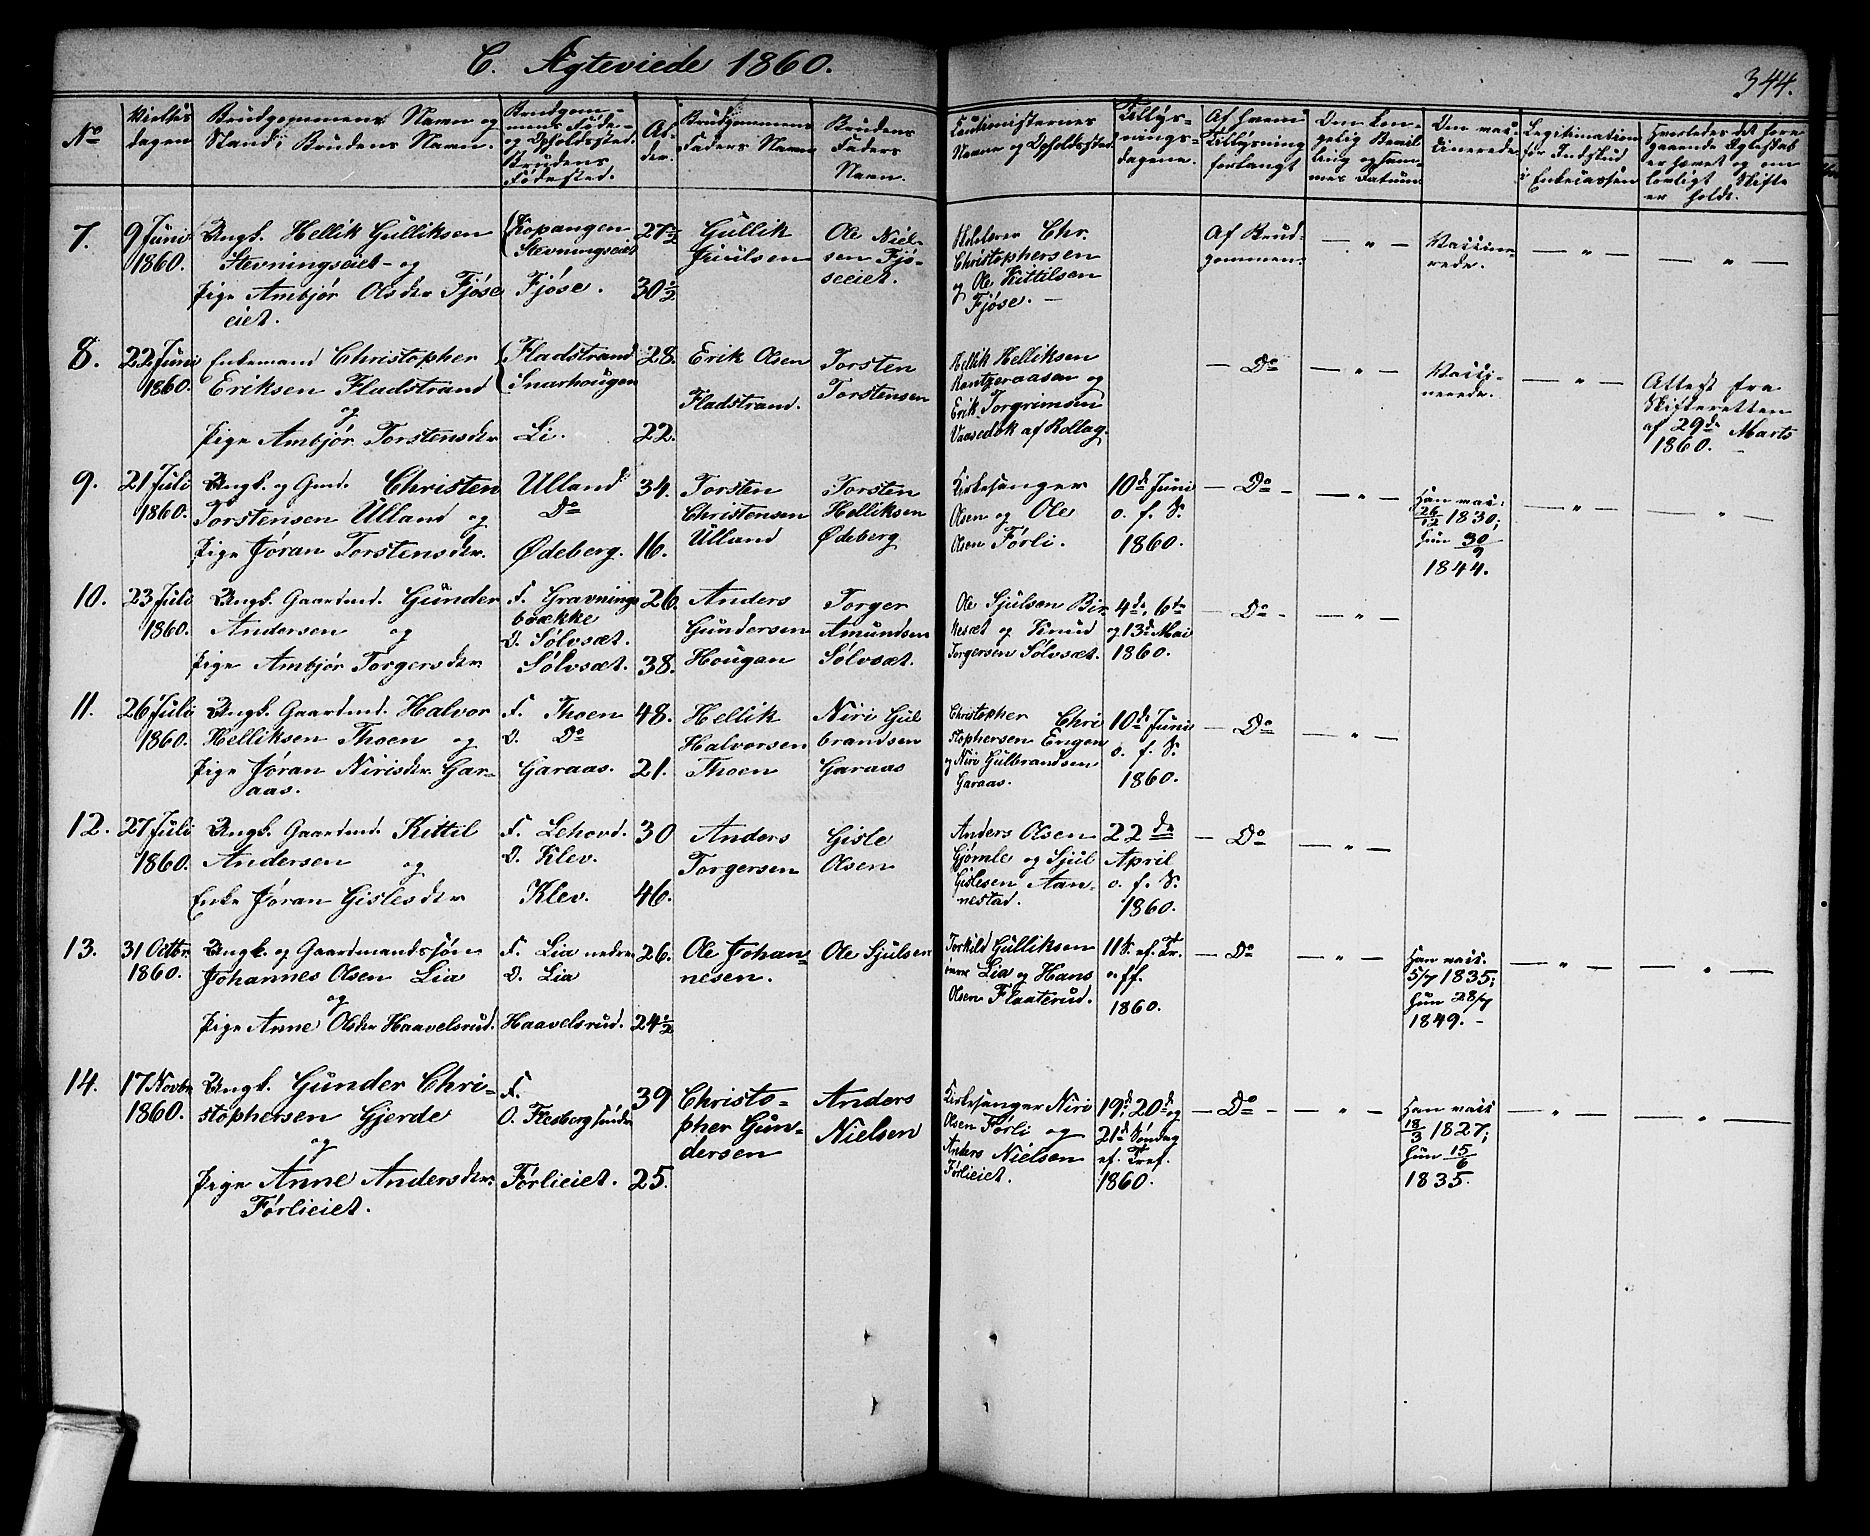 C. Ægteviede 1860.
344.
No
Vielses
dagen
Brudgommens Navn og
Stand, Brudens Navn.
Brudgom-
mens Føde-
og Opholdssted.
Brudens
Fødested.
Al-
der.
Brudgommens
Faders Navn
Brudens
Faders
Navn.
Cautionisternes
Navne og Opholdssted
Tillys-
nings-
dagene.
Af hvem
Tillysning
forlangt
Den kon-
gelig Bevil-
ling og sam-
mes Datum
Den vac-
cinerede.
Legitimation
for Indskud
i Enkecassen
Hvorledes det fore
gaaende Ægteskab
er hævet og om
lovligt Skifte
er holdt.
7.
9 Juni
1860.
Ungk. Hellik Gulliksen
Stevningseiet og
Pige Ambjør Olsdtr Fjøse
eiet.
Kopangen
Stevningseiet
Fjøse.
27½
30½
Gullik
Juulsen
Ole Niel-
sen Fjø-
seeiet.
Chr.
Christophersen
og Ole Kittilsen
Fjøse. —
Af Brud-
gommen.
— " —
Vaccine-
rede.
— " —
— " —
8.
22 Juni
1860.
Enkemand Christopher
Eriksen Fladstrand
og
Pige Ambjør Torstensdtr
Fladstrand
Snarhougen
Li.
28.
22.
Erik Olsen
Fladstrand.
Torsten
Torstensen
Hellik Helliksen
og
Erik Torgrimsen
af Rollag.
— Do
— " —
Vacci-
nerede.
— " —
Attest fra
Skifteretten
af 29de Marts
1860. —
9.
21 Juli
1860.
Ungk. og Gmd. Christen
Torstensen Ulland og
Pige Jøran Torstensdtr.
Ulland
Do
Ødeberg.
34.
16.
Torsten
Christensen
Ulland
Torsten
Helliksen
Ødeberg
Kirkesanger
Olsen og Ole
Olsen Førli.
10de Juni
o. f. S.
1860.
— Do —
— " —
Han vac:
26/12 1830;
hun 30/9
1844.
— " —
— " —
10.
23 Juli
1860.
Ungk. Gaardmd. Gunder
Andersen og
Pige Ambjør Torgersdtr
F. Gravnings
bække
O. Sølvsæt.
Sølvsæt.
26.
38.
Anders
Gundersen
Hougan
Torger
Amundsen
Sølvsæt.
Ole Sjulsen Bir-
kesæt og Knud
Torgersen Sølvsæt.
4de, 6te
og 13de Mai
1860.
— Do —
— " —
11.
26 Juli
1860.
Ungk. Gaardmd. Halvor
Helliksen Thoen og
Pige Jøran Nirisdtr Gar-
aas.
F. Thoen
O. Do
Garaas.
48.
21.
Hellik
Halvorsen
Thoen
Niri Gul
brandsen
Garaas
Christopher Chri
stophersen Engen
og Niri Gulbrandsen
Garaas.
10de Juni
o. f. S.
1860.
— Do
— " —
12.
27 Juli
1860.
Ungk. Gaardmd. Kittil
Andersen og
Enke Jøran Gislesdtr
F. Lehovd.
O. Klev.
Klev.
30
46.
Anders
Torgersen
Gisle
Olsen
Anders Olsen
Gjømle og Sjul
Gislesen Aan-
nestad.
22de
April
o. f. S.
1860.
— Do
— " —
13.
31 Octbr
1860.
Ungk. og Gaardmandssøn
Johannes Olsen Lia
og
Pige Anne Olsdtr Haavelsrud.
F. Lia nedre
O. Lia
Haavelsrud.
26.
24½
Ole Johan-
nesen.
Ole Sjulsen
Torkild Gulliksen
Lia og Hans
Olsen Flaaterud.
11 S. ef. Tr.
o ff.
1860.
— Do
— " —
Han vac.
5/7 1835;
hun 28/7
1849. —
— " —
— " —
14.
17 Novbr
1860.
Ungk. Gunder Chri-
stophersen Gjerde
og
Pige Anne Andersdtr
Førlieiet.
F.
O. Flesberg søndre
Førlieiet.
39
25.
Christo-
pher Gun-
dersen
Anders
Nielsen
Kirkesanger Niri
Olsen Førli og
Anders Nielsen
Førlieiet.
19de 20de og
21de Søndag
ef. Tref.
1860.
— Do —
— " —
Han vacc
18/3 1827;
hun 15/6
1835.
— " —
— " —